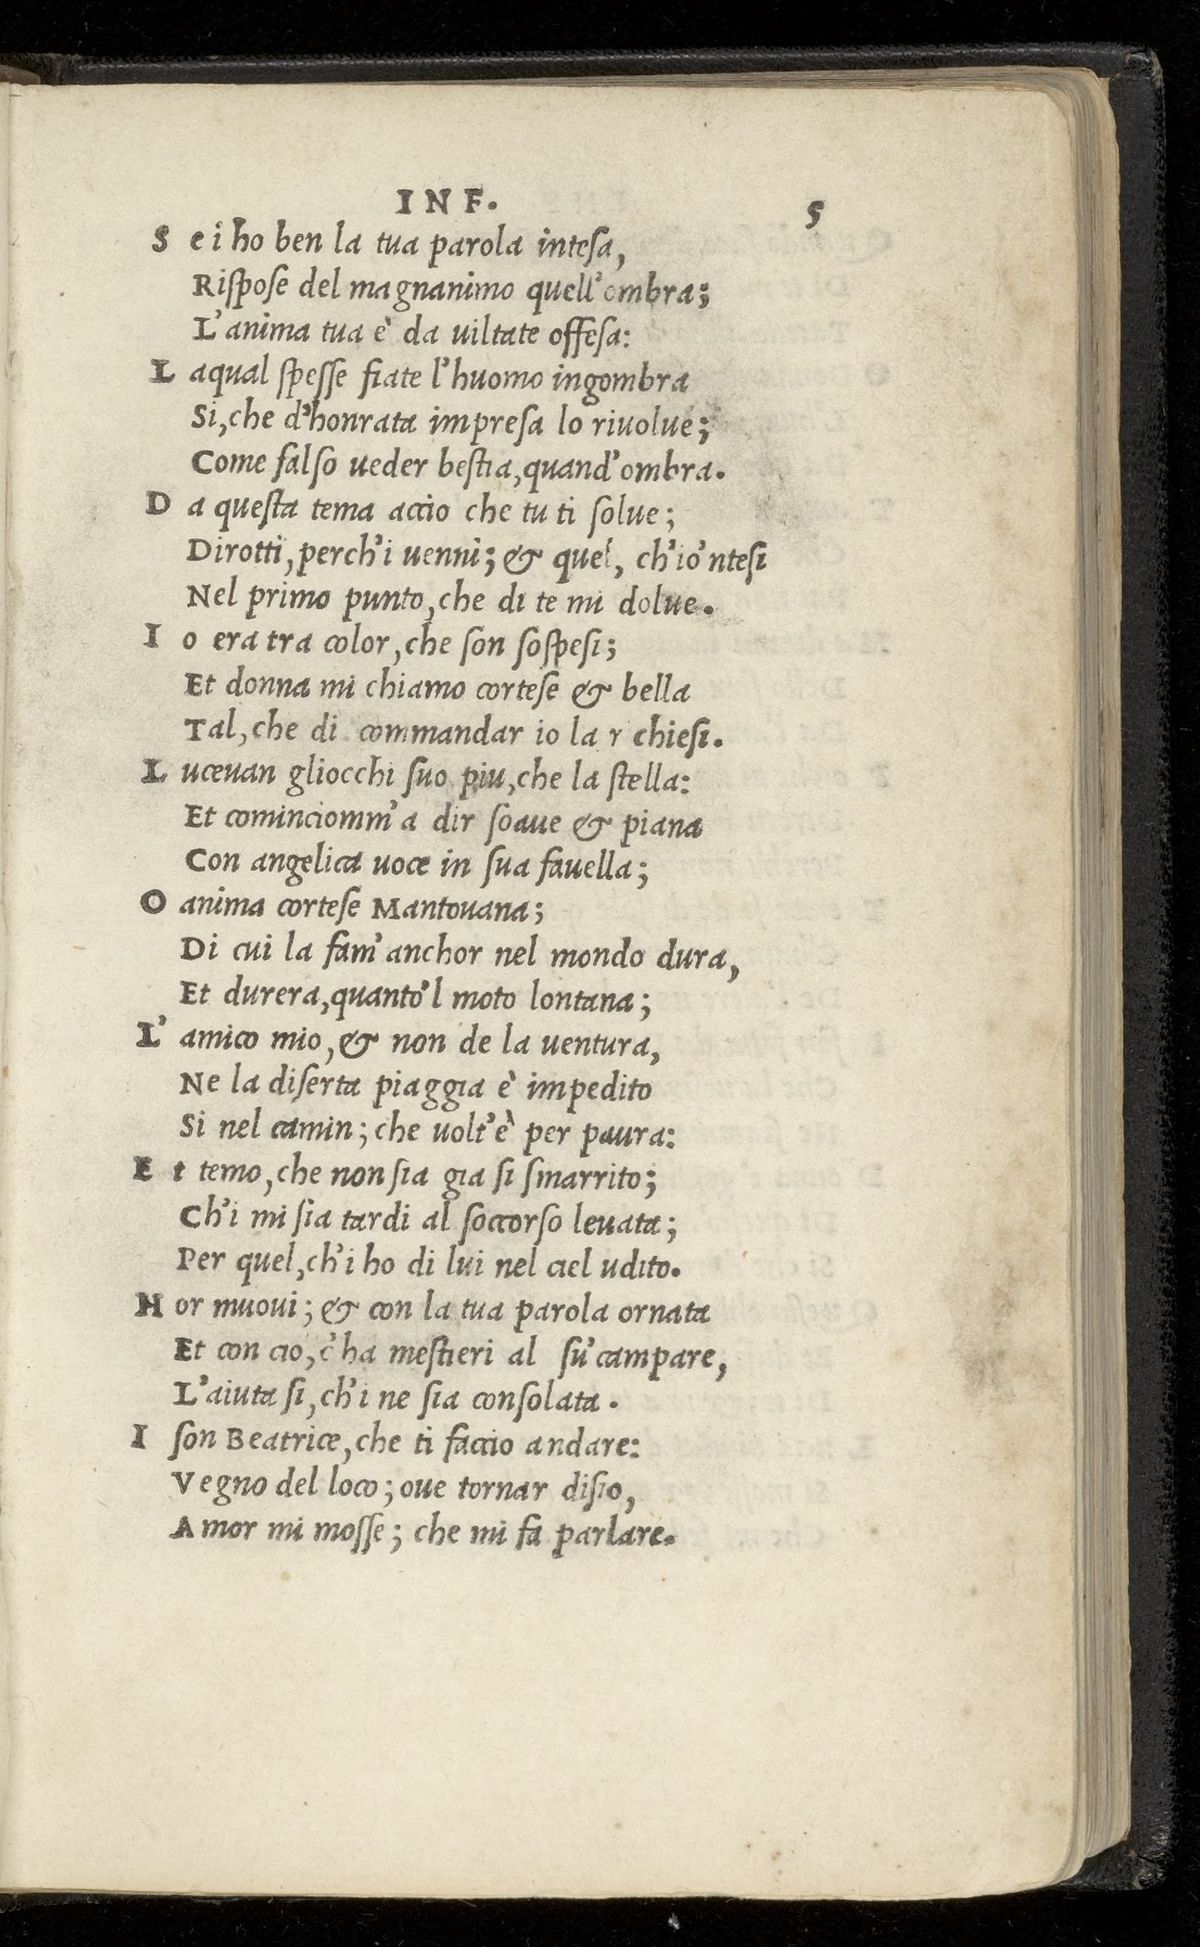 INF. 5
S e i ho ben la tua parola intesa,
Rispose del magnanimo quell'ombra;
L'anima tua è da uiltate offesa:
L aqual spesse fiate l'huomo ingombra
Si, che d'honrata impresa lo riuolue;
Come falso ueder bestia, quand'ombra.
D a questa tema accio che tu ti solue;
Dirotti, perch'i uenni; & quel, ch'io'ntesi
Nel primo punto, che di te mi dolue.
I o era tra color, che son sospesi;
Et donna mi chiamo cortese & bella
Tal, che di commandar io la r chiesi.
L uceuan gliocchi suo piu, che la stella:
Et cominciomm'a dir soaue & piana
Con angelica uoce in sua fauella;
O anima cortese Mantouana;
Di cui la fam'anchor nel mondo dura,
Et durera, quanto'l moto lontana;
L' amico mio, & non de la uentura,
Ne la diserta piaggia è impedito
Si nel camin; che uolt'è per paura:
E t temo, che non sia gia si smarrito;
Ch'i mi sia tardi al soccorso leuata;
Per quel, ch'i ho di lui nel ciel udito.
H or muoui; & con la tua parola ornata
Et con cio, c'ha mestieri al su'campare,
L'aiuta si, ch'i ne sia consolata.
I son Beatrice, che ti faccio andare:
Vegno del loco; oue tornar disio,
Amor mi mosse; che mi fa parlare.